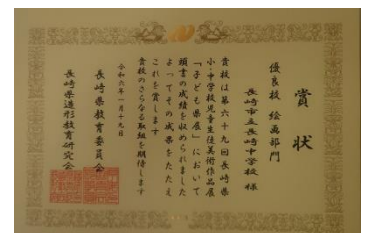 賞状
優良校 絵画部門
長崎市立長崎中学校 様
貴校は第六十九回長崎県
小中学校児童生徒美術作品展
「子ども県展」において
頭書の成績を収められました
よってその成果をたたえ
これを賞します
貴校のさらなる取組を期待します
令和六年一月十九日
長崎県教育委員会
長崎県造形教育研究会